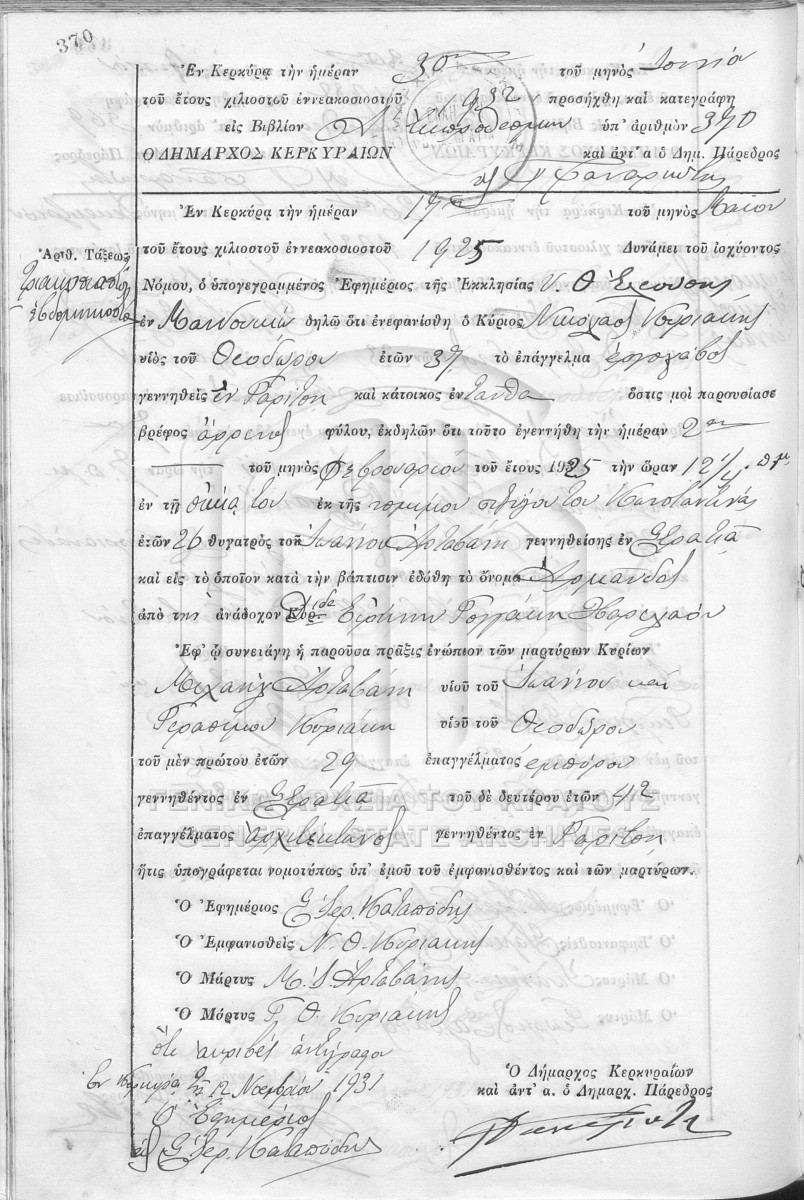 370
Ἐν Κερκύρᾳ τὴν ἡμέραν 30ην τοῦ μηνὸς
τοῦ ἔτους χιλιοστοῦ ἐννεακοσιοστοῦ 1932 προσήχθη καὶ κατεγράφη
εἰς Βιβλίον ὑπ' ἀριθμὸν 370
Ο ΔΗΜΑΡΧΟΣ ΚΕΡΚΥΡΑΙΩΝ καὶ ἀντ' α ὁ Δημ. Πάρεδρος
Ἐν Κερκύρᾳ τὴν ἡμέραν τοῦ μηνὸς Μαΐου
Ἀριθ. Τάξεως τοῦ ἔτους χιλιοστοῦ ἐννεακοσιοστοῦ 1925 Δυνάμει τοῦ ἰσχύοντος
Νόμου, ὁ ὑπογεγραμμένος Ἐφημέριος τῆς Ἐκκλησίας Υ. Θ.
ἐν Μανδουκίῳ δηλῶ ὅτι ἐνεφανίσθη ὁ Κύριος Νικόλαος Κυριάκης
υἱὸς τοῦ Θεοδώρου ἐτῶν 37 τὸ ἐπάγγελμα ἐργολάβος
γεννηθεὶς ἐν Γαρίτσῃ καὶ κάτοικος ἐνταῦθα ὅστις μοὶ παρουσίασε
βρέφος ἄρρενος φύλου, ἐκδηλῶν ὅτι τοῦτο ἐγεννήθη τὴν ἡμέραν 2αν
τοῦ μηνὸς Φεβρουαρίου τοῦ ἔτους 1925 τὴν ὥραν 12
ἐν τῇ οἰκίᾳ του ἐκ τῆς νομίμου συζύγου του Κωνσταντίνας
ἐτῶν 26 θυγατρὸς τοῦ Ἰωάννου Ἀρταβάνη γεννηθείσης ἐν
καὶ εἰς τὸ ὁποῖον κατὰ τὴν βάπτισιν ἐδόθη τὸ ὄνομα Ἀρμάνδος
ἀπὸ τῆς ἀνάδοχον Δίδα Εἰρήνην
Ἐφ' ᾧ συνειάγη ἡ παροῦσα πρᾶξις ἐνώπιον τῶν μαρτύρων Κυρίων
Μιχαὴλ Ἀρταβάνη υἱοῦ τοῦ Ἰωάννου καὶ
Γερασίμου Κυριάκη υἱοῦ τοῦ Θεοδώρου
τοῦ μὲν πρώτου ἐτῶν 29 ἐπαγγέλματος ἐμπόρου
γεννηθέντος ἐν τοῦ δὲ δευτέρου ἐτῶν 42
ΓΕΝΙΚΑ ΑΡΧΕΙΑ ΤΟΥ ΚΡΑΤΟΥΣ
GENERAL STATE ARCHIVES
ἐπαγγέλματος ἀρχιτέκτονος γεννηθέντος ἐν Γαρίτσῃ
ἥτις ὑπογράφεται νομοτύπως ὑπ' ἐμοῦ τοῦ ἐμφανισθέντος καὶ τῶν μαρτύρων.
Ὁ Ἐφημέριος
Ὁ Ἐμφανισθεὶς Ν. Θ. Κυριάκης
Ὁ Μάρτυς Μ. Ι. Ἀρταβάνης
Ὁ Μάρτυς Γ. Θ. Κυριάκης
Ὅτι ἀκριβὲς ἀντίγραφον
Ἐν Κερκύρᾳ τῇ 12 Νοεμβρίου 1931
Ὁ Ἐφημέριος
Ὁ Δήμαρχος Κερκυραίων
καὶ ἀντ' α. ὁ Δημαρχ. Πάρεδρος